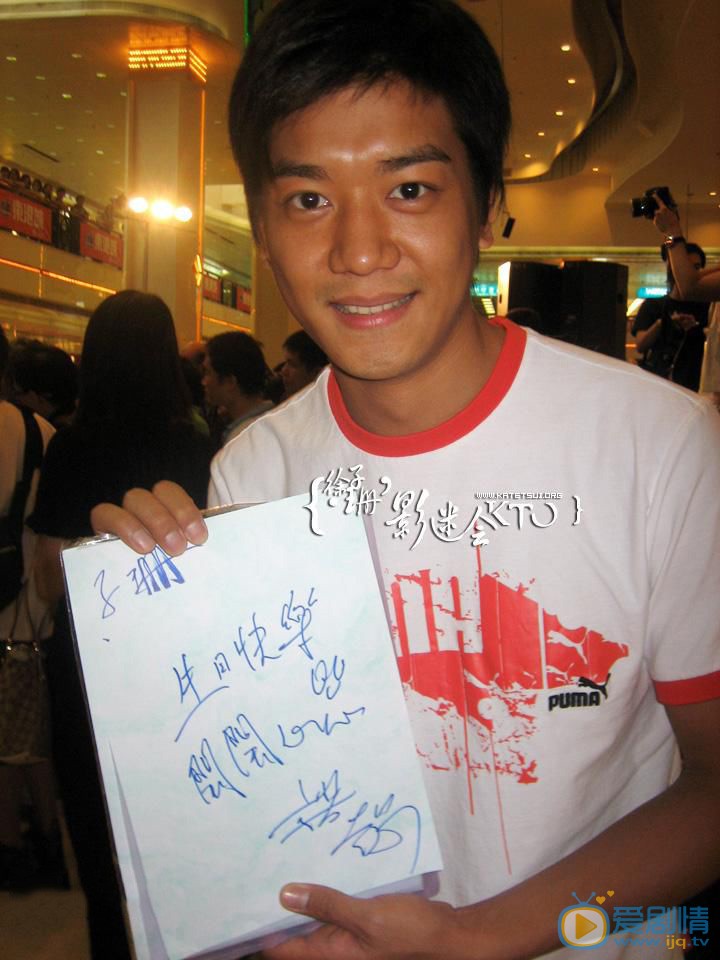 東港城
{徐子珊'影迷会KTO}
WWW.KATETSUI.ORG
子珊:
生日快樂
08
開開心心
PUMA
爱剧情
www.ijq.tv